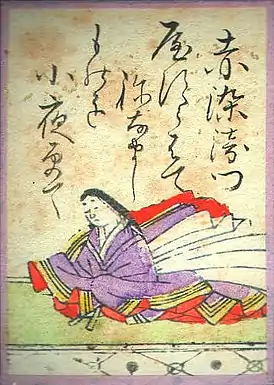 赤染衛門
屋すらはて
祢なまし
ものを
小夜更て